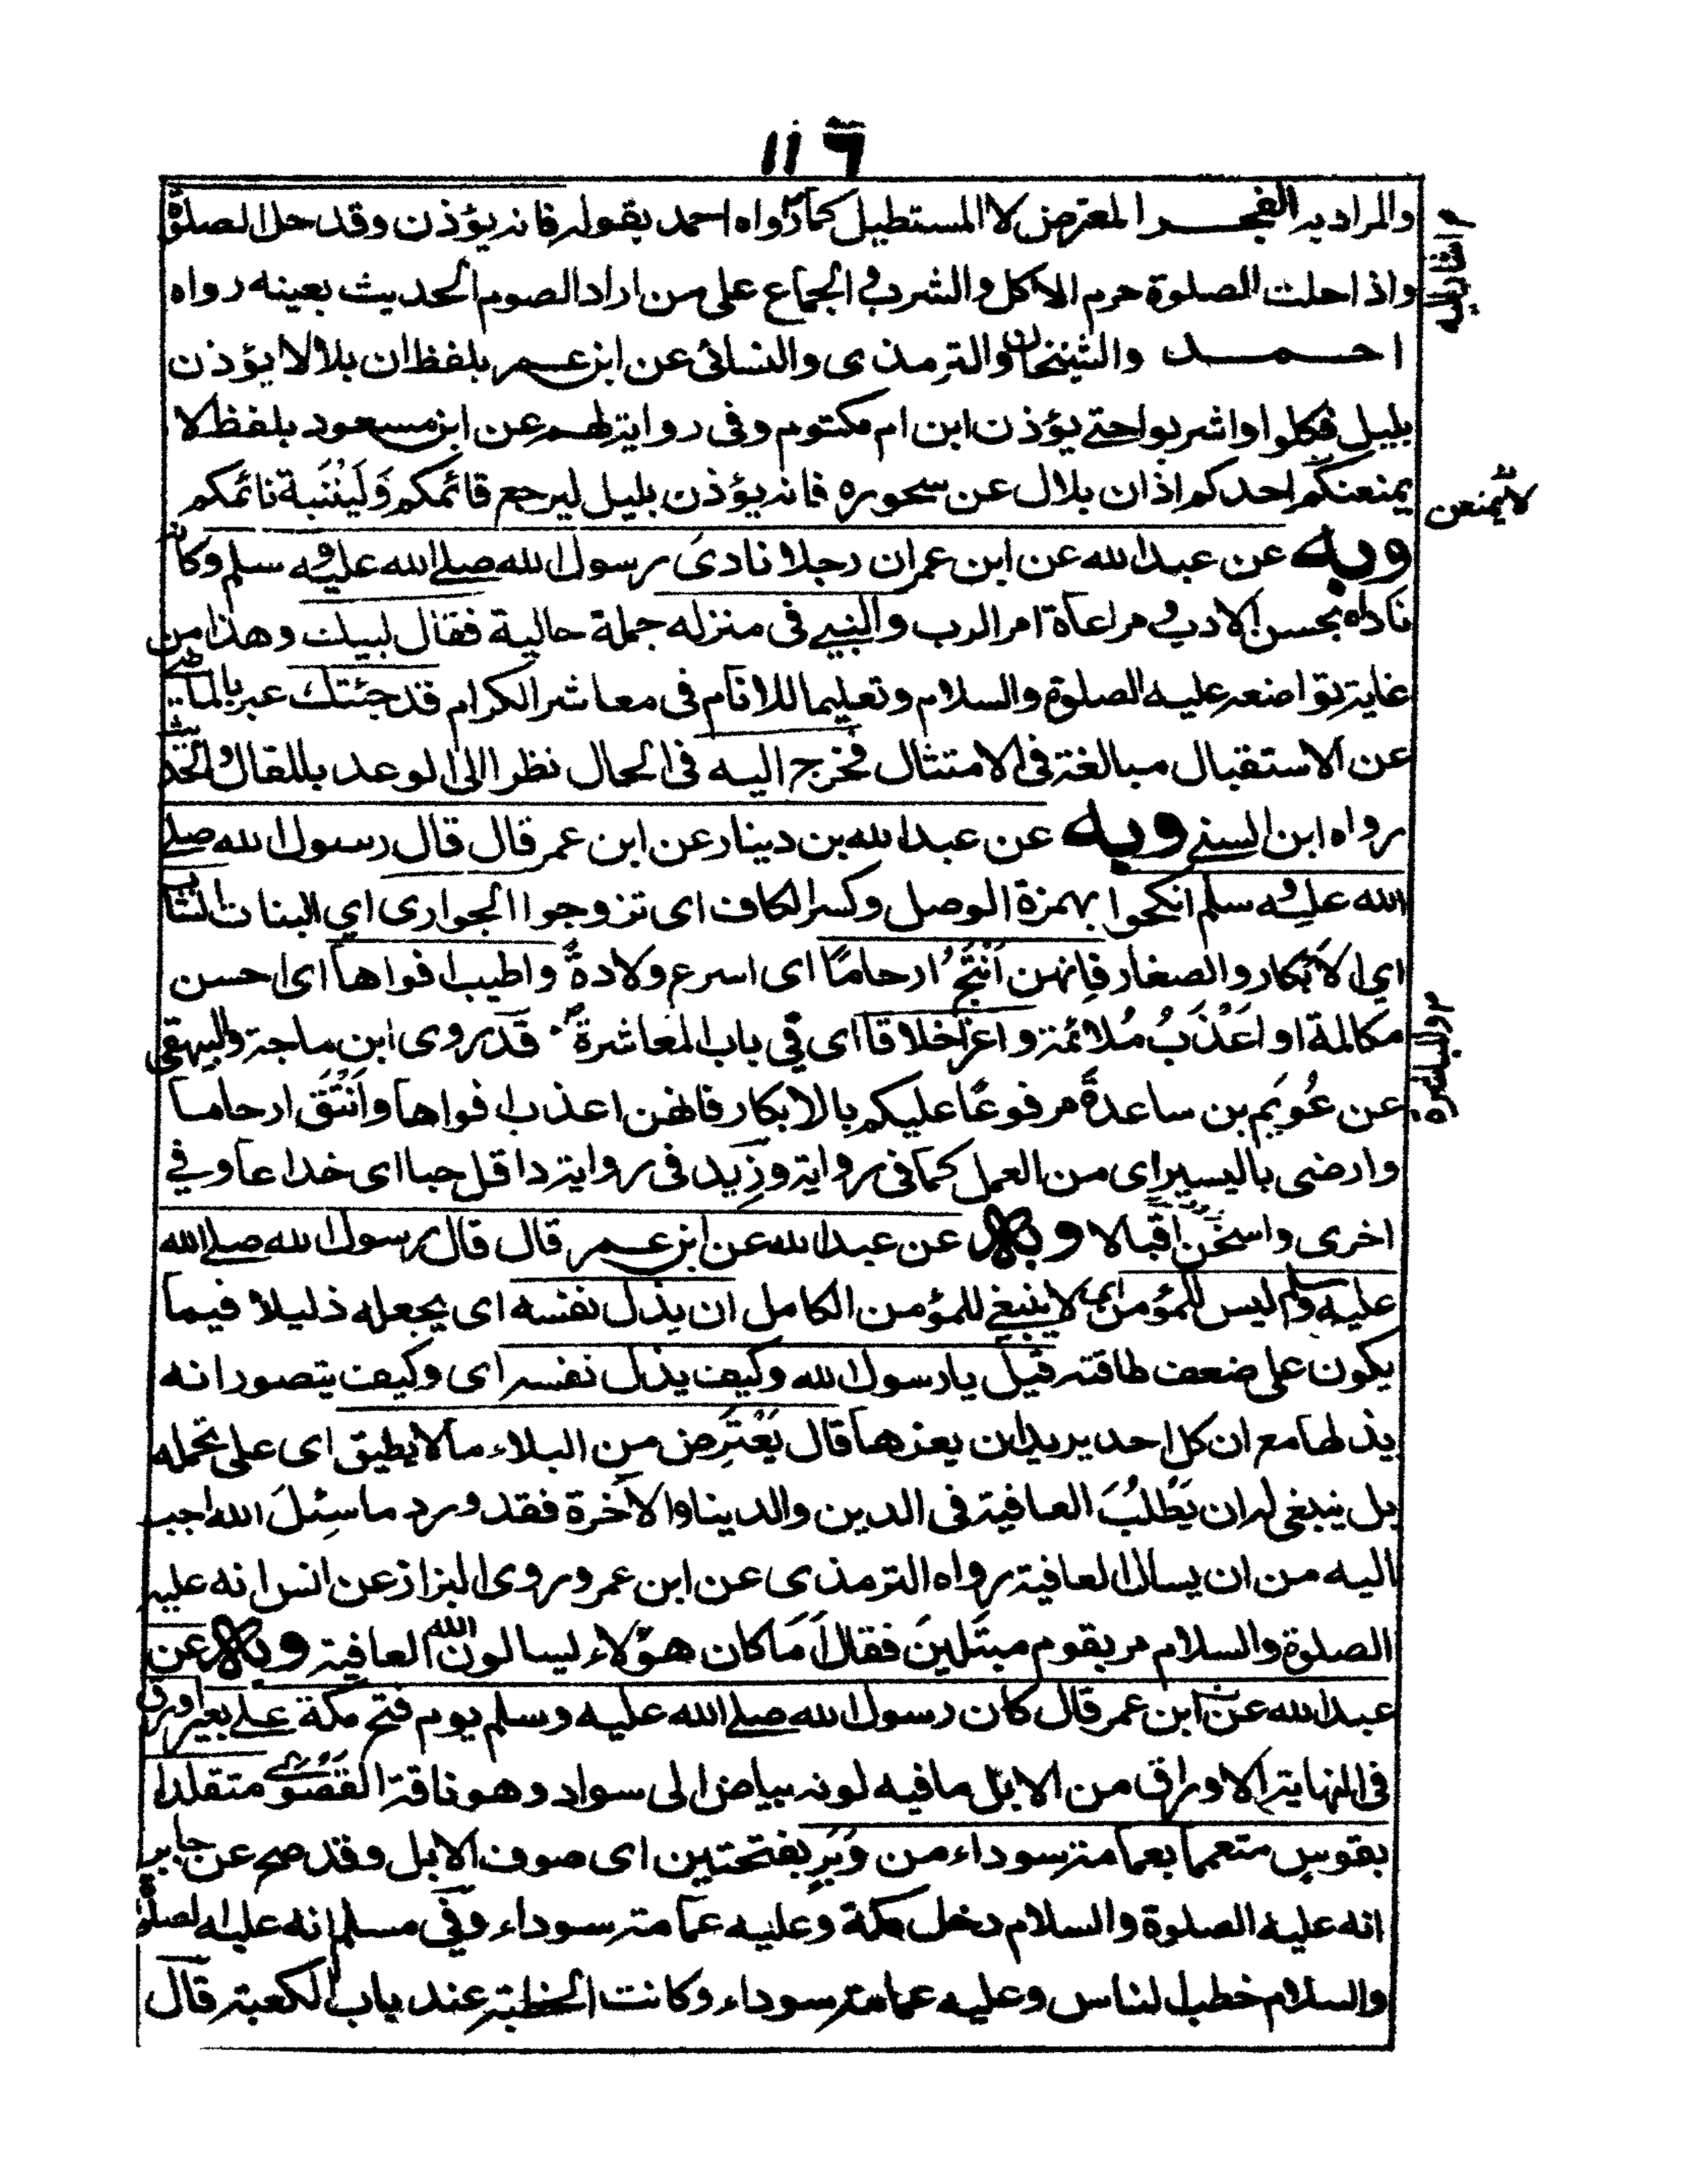 ١١٦
والمراد به الفجر المعترض لا المستطيل كما رواه احمد بقوله فانه يؤذن وقد حل الصلوة
واذا حلت الصلوة حرم الاكل والشرب و الجماع على من اراد الصوم الحديث بعينه رواه
احمد والشيخان والترمذى والنسائى عن ابن عمر بلفظ ان بلالا يؤذن
بليل فكلوا واشربوا حتى يؤذن ابن ام مكتوم وفى رواية لهم عن ابن مسعود بلفظ لا
يمنعنكم احدكم اذان بلال عن سحوره فانه يؤذن بليل ليرجع قائمكم وَلَيِنُنَبِهَ نائمكم
لا يمنعن
وبه عن عبد الله عن ابن عمر ان رجلا نادى رسول الله صلى الله عليه و سلم وكانه
ناداه بحسن الادب و مراعاة امر الرب والنبى فى منزله جملة حالية فقال لبيك وهذا من
غاية تواضعه عليه الصلوة والسلام وتعليما للانام فى معاشر الكرام قد جئتك عبر بالماضى
عن الاستقبال مبالغة فى الامتثال فخرج اليه فى الحال نظرا الى الوعد بالمقال والحديث
رواه ابن السنى وبه عن عبد الله بن دينار عن ابن عمر قال قال رسول الله صلى
الله عليه و سلم انكحوا بهمزة الوصل وكسر الكاف اى تزوجوا الجوارى اي البنات الشاب
اي الابكار والصغار فانهن اَنْتَجُ ارحامًا اى اسرع ولادةً واطيب افواها اى احسن
مكالمة او اَعْذَبُ مُلائمة واعز اخلاقا اى فى باب المعاشرة قد روى ابن ماجة والبيهقى
عن عُوَيم بن ساعدةً مرفوعًا عليكم بالابكار فانهن اعذب افواها وانْتَقُ ارحاما
وارضى باليسير اى من العمل كما فى رواية وزِيد فى رواية واقل حبا اى خداعا وفي
اخرى واسخن اقبالا وبه عن عبد الله عن ابن عمر قال قال رسول الله صلى الله
عليه وسلم ليس للمؤمن اى لا ينبغى للمؤمن الكامل ان يذل نفسه اى يجعله ذليلا فيما
يكون على ضعف طاقته قيل يا رسول الله وكيف يذل نفسه اى وكيف يتصور انه
يذلها مع ان كل احد يريد ان يعزها قال يَعْتَرِض من البلاء ما لا يطيق اى على تحمله
بل ينبغى له ان يَطْلُبَ العافية فى الدين والدينا والآخرة فقد ورد ما سِئلَ الله احب
اليه من ان يسال العافية رواه الترمذى عن ابن عمر وروى البزاز عن انس انه عليه
الصلوة والسلام مر بقوم مبتَلينَ فقال اَمَا كان هؤلاء ليسالون الله العافية وبه عن
عبد الله عن ابن عمر قال كان رسول الله صلى الله عليه وسلم يوم فتح مكة على بعير اورق
فى النهاية الاوراق من الابل ما فيه لونه بياض الى سواد وهو ناقة القَصْوٰى متقلدا
بقوس متعمما بعمامة سوداء من وَبَرٍ بفتحتين اى صوف الابل وقد صح عن جابر
انه عليه الصلوة والسلام دخل مكة وعليه عمامة سوداء وفى مسلم انه عليه الصلوة
والسلام خطب لناس وعليه عمامة سوداء وكانت الخطبة عند باب الكعبة قال